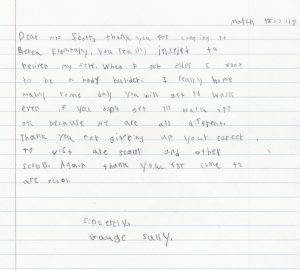 match 18 2015
Dear mr Scott, thank you for coming to
Berea Elementary, you really insired to
beliven my self. When I get older I want
to be a body builder. I really home
many some day you will get to walk
even if you dont get to walk its
ok because we are all different.
Thank you not giveing up your career
to visit are scool and other
scools. Again thank you for come to
are scool
sincerely,
Gauge Sully.